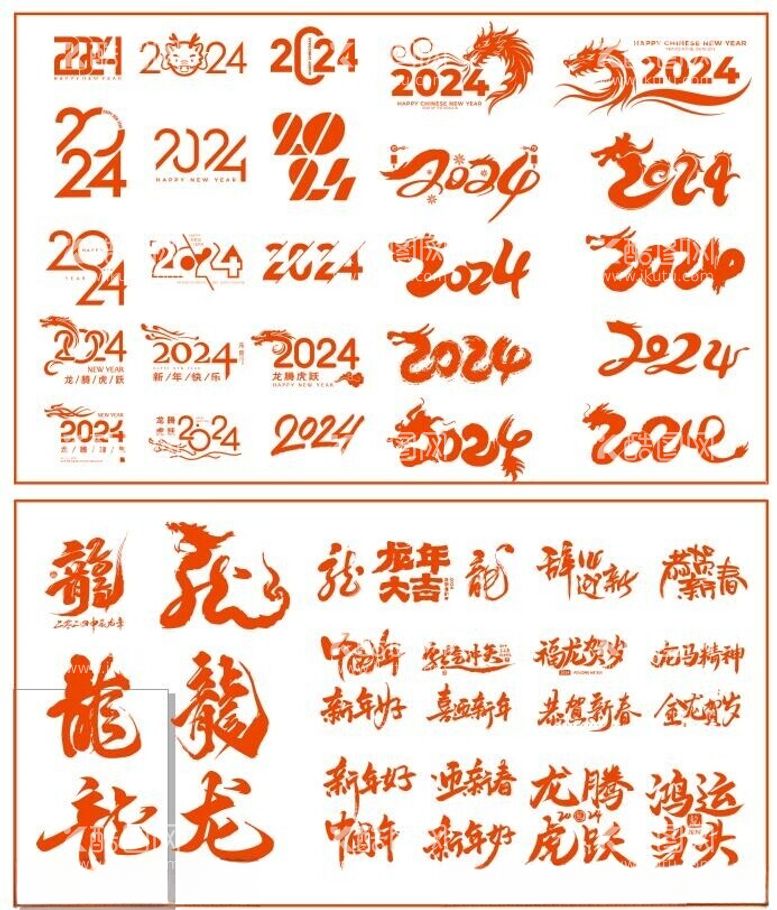 2024
HAPPY NEW YEAR
2024
2024
2024
HAPPY CHINESE NEW YEAR
HAPPY CHINESE NEW YEAR
2024
2024
2024
HAPPY NEW YEAR
2024
2024
2024
2024
HAPPY
YEAR
2024
2024
2024
2024
2024
NEW YEAR
龙/腾/虎/跃
2024
新/年/快/乐
2024
龙腾虎跃
HAPPY NEW YEAR
2024
2024
NEW YEAR
2024
龙腾
虎跃
2024
2024
2024
2024
龍
二〇二四甲辰龙年
龙
龙
龙年
大吉
龍
辞旧迎新
恭贺新春
中国年
福龙贺岁
龙马精神
新年好
喜迎新年
恭贺新春
金龙贺岁
龍
龍
新年好
迎新春
龙腾
2024
虎跃
鸿运
当头
龙
龙
中国年
新年好
酷图网
www.ikutu.com